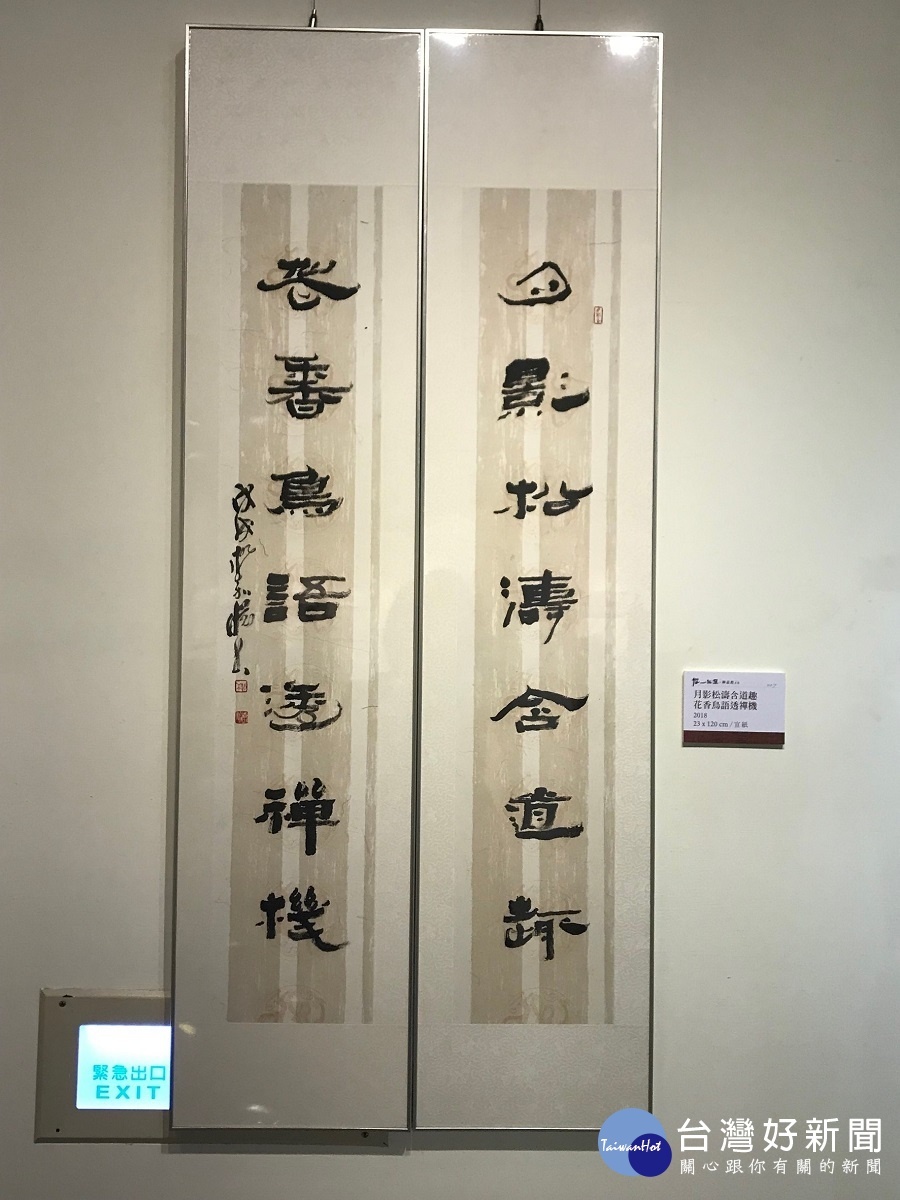 月影松濤含道趣
花香鳥語透禪機
戊戌
月影松濤含道趣
花香鳥語透禪機
2018
23 x 120 cm / 宣紙
緊急出口
EXIT
TaiwanHot
台灣好新聞
關心跟你有關的新聞